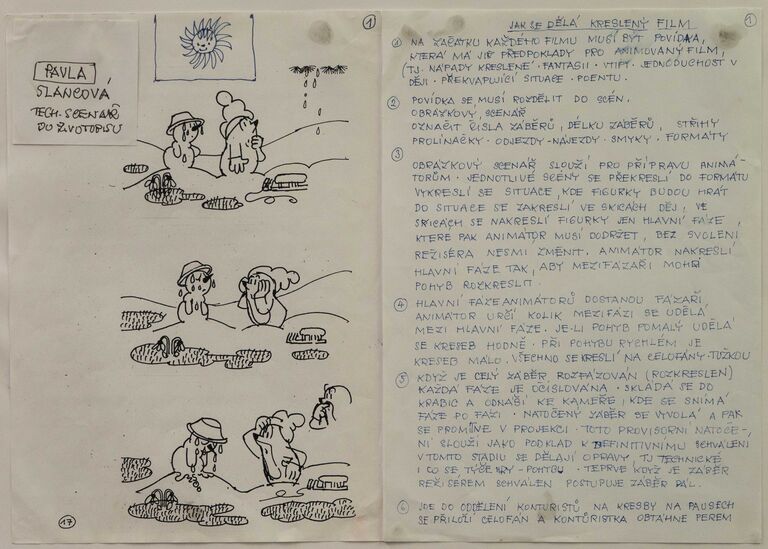 1
PAVLA
SLANCOVÁ
TECH. SCENÁŘ
DO ŽIVOTOPISU
17
1
JAK SE DĚLÁ KRESLENÝ FILM
1 NA ZAČÁTKU KAŽDÉHO FILMU MUSÍ BÝT POVÍDKA,
KTERÁ MÁ JIŽ PŘEDPOKLADY PRO ANIMOVANÝ FILM,
(TJ. NÁPADY KRESLENÉ · FANTASII · VTIPY · JEDNODUCHOST V
DĚJI · PŘEKVAPUJÍCÍ SITUACE · POENTU.
2 POVÍDKA SE MUSÍ ROZDĚLIT DO SCÉN.
OBRÁZKOVÝ SCENÁŘ
OZNAČIT ČÍSLA ZÁBĚRŮ, DÉLKU ZÁBĚRŮ, STŘIHY
PROLÍNAČKY · ODJEZDY · NÁJEZDY · SMYKY · FORMÁTY
3 OBRÁZKOVÝ SCENÁŘ SLOUŽÍ PRO PŘÍPRAVU ANIMÁ-
TORŮM · JEDNOTLIVÉ SCÉNY SE PŘEKRESLÍ DO FORMÁTU
VYKRESLÍ SE SITUACE, KDE FIGURKY BUDOU HRÁT
DO SITUACE SE ZAKRESLÍ VE SKICÁCH DĚJ, VE
SKICÁCH SE NAKRESLÍ FIGURKY JEN HLAVNÍ FÁZE,
KTERÉ PAK ANIMÁTOR MUSÍ DODRŽET, BEZ SVOLENÍ
REŽISÉRA NESMÍ ZMĚNIT. ANIMÁTOR NAKRESLÍ
HLAVNÍ FÁZE TAK, ABY MEZIFÁZAŘI MOHLI
POHYB ROZKRESLIT.
4 HLAVNÍ FÁZE ANIMÁTORŮ DOSTANOU FÁZAŘI
ANIMÁTOR URČÍ KOLIK MEZIFÁZÍ SE UDĚLÁ
MEZI HLAVNÍ FÁZE. JE-LI POHYB POMALÝ UDĚLÁ
SE KRESEB HODNĚ · PŘI POHYBU RYCHLÉM JE
KRESEB MÁLO. VŠECHNO SE KRESLÍ NA CELOFÁNY · TUŽKOU
5 KDYŽ JE CELÝ ZÁBĚR ROZFÁZOVÁN (ROZKRESLEN)
KAŽDÁ FÁZE JE OČÍSLOVÁNA · SKLÁDÁ SE DO
KRABIC A ODNÁŠÍ KE KAMEŘE, KDE SE SNÍMÁ
FÁZE PO FÁZI · NATOČENÝ ZÁBĚR SE VYVOLÁ A PAK
SE PROMÍTNE V PROJEKCI · TOTO PROVISORNÍ NATOČE-
NÍ SLOUŽÍ JAKO PODKLAD K DEFINITIVNÍMU SCHVÁLENÍ
V TOMTO STADIU SE DĚLAJÍ OPRAVY, TJ TECHNICKÉ
I CO SE TÝČE HRY · POHYBU · TEPRVE KDYŽ JE ZÁBĚR
REŽISÉREM SCHVÁLEN POSTUPUJE ZÁBĚR DÁL.
6 JDE DO ODDĚLENÍ KONTURISTŮ NA KRESBY NA PAUSECH
SE PŘILOŽÍ CELOFÁN A KONTURISTKA OBTÁHNE PEREM